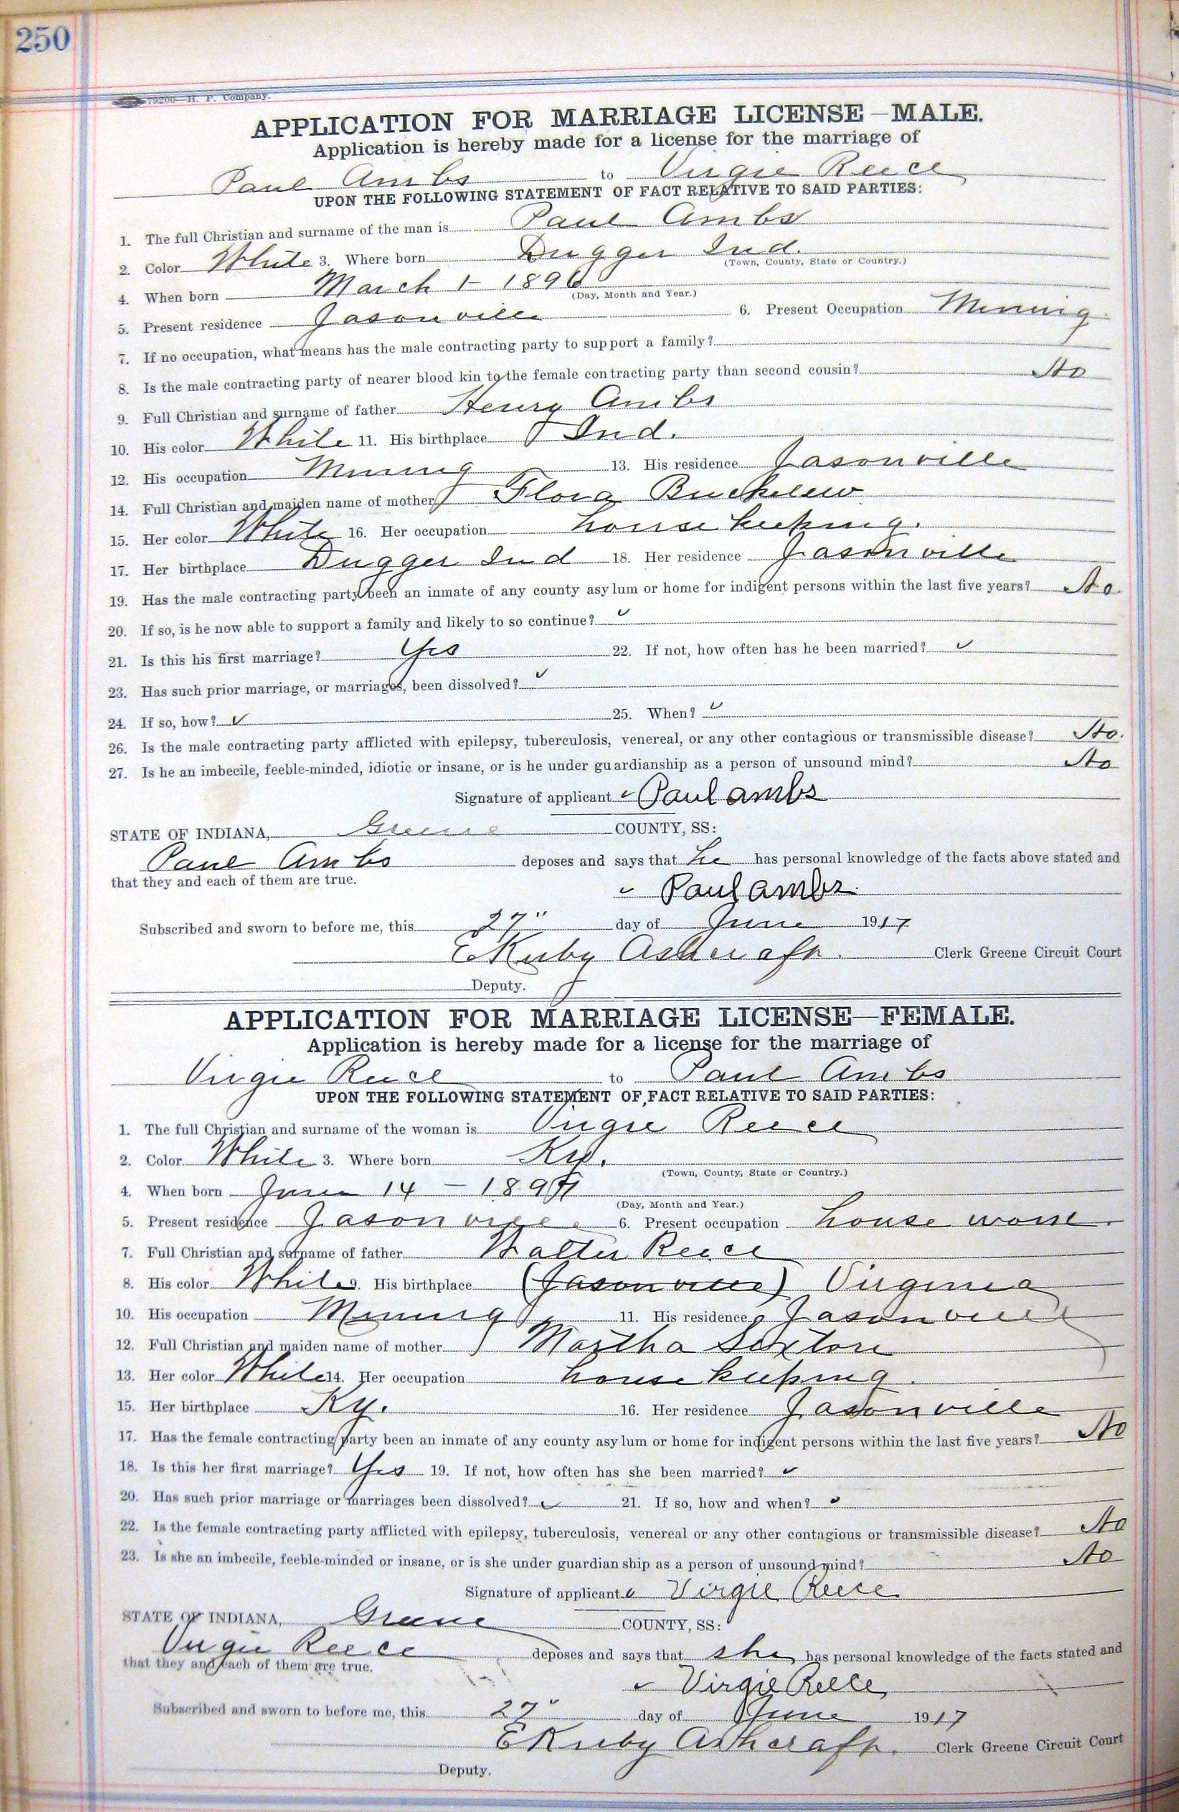 250
79200—H. P. Company.
APPLICATION FOR MARRIAGE LICENSE—MALE.
Application is hereby made for a license for the marriage of
Paul Ambs to Virgie Reece
UPON THE FOLLOWING STATEMENT OF FACT RELATIVE TO SAID PARTIES:
1. The full Christian and surname of the man is Paul Ambs
2. Color White 3. Where born Dugger Ind.
(Town, County, State or Country.)
4. When born March 1 - 1896
(Day, Month and Year.)
5. Present residence Jasonville 6. Present Occupation Mining
7. If no occupation, what means has the male contracting party to support a family?
8. Is the male contracting party of nearer blood kin to the female contracting party than second cousin? No
9. Full Christian and surname of father Henry Ambs
10. His color White 11. His birthplace Ind.
12. His occupation Mining 13. His residence Jasonville
14. Full Christian and maiden name of mother Flora Buckelew
15. Her color White 16. Her occupation house keeping.
17. Her birthplace Dugger Ind 18. Her residence Jasonville
19. Has the male contracting party been an inmate of any county asylum or home for indigent persons within the last five years? No.
20. If so, is he now able to support a family and likely to so continue? ✓
21. Is this his first marriage? Yes 22. If not, how often has he been married? ✓
23. Has such prior marriage, or marriages, been dissolved? ✓
24. If so, how? ✓ 25. When? ✓
26. Is the male contracting party afflicted with epilepsy, tuberculosis, venereal, or any other contagious or transmissible disease? No.
27. Is he an imbecile, feeble-minded, idiotic or insane, or is he under guardianship as a person of unsound mind? No
Signature of applicant ✓ Paul ambs
STATE OF INDIANA, Greene COUNTY, SS:
Paul Ambs deposes and says that he has personal knowledge of the facts above stated and
that they and each of them are true.
✓ Paul ambs.
Subscribed and sworn to before me, this 27" day of June 1917
E Kirby Ashcraft. Clerk Greene Circuit Court
Deputy.
APPLICATION FOR MARRIAGE LICENSE—FEMALE.
Application is hereby made for a license for the marriage of
Virgie Reece to Paul Ambs
UPON THE FOLLOWING STATEMENT OF FACT RELATIVE TO SAID PARTIES:
1. The full Christian and surname of the woman is Virgie Reece
2. Color White 3. Where born Ky.
(Town, County, State or Country.)
4. When born June 14 - 1897
(Day, Month and Year.)
5. Present residence Jasonville 6. Present occupation house work.
7. Full Christian and surname of father Walter Reece
8. His color White 9. His birthplace (Jasonville) Virginia
10. His occupation Mining 11. His residence Jasonville
12. Full Christian and maiden name of mother Martha Sexton
13. Her color White 14. Her occupation house keeping.
15. Her birthplace Ky. 16. Her residence Jasonville
17. Has the female contracting party been an inmate of any county asylum or home for indigent persons within the last five years? No
18. Is this her first marriage? Yes 19. If not, how often has she been married? ✓
20. Has such prior marriage or marriages been dissolved? ✓ 21. If so, how and when? ✓
22. Is the female contracting party afflicted with epilepsy, tuberculosis, venereal or any other contagious or transmissible disease? No
23. Is she an imbecile, feeble-minded or insane, or is she under guardianship as a person of unsound mind? No
Signature of applicant ✓ Virgie Reece
STATE OF INDIANA, Greene COUNTY, SS:
Virgie Reece deposes and says that she has personal knowledge of the facts stated and
that they and each of them are true.
✓ Virgie Reece
Subscribed and sworn to before me, this 27" day of June 1917
E Kirby Ashcraft. Clerk Greene Circuit Court
Deputy.